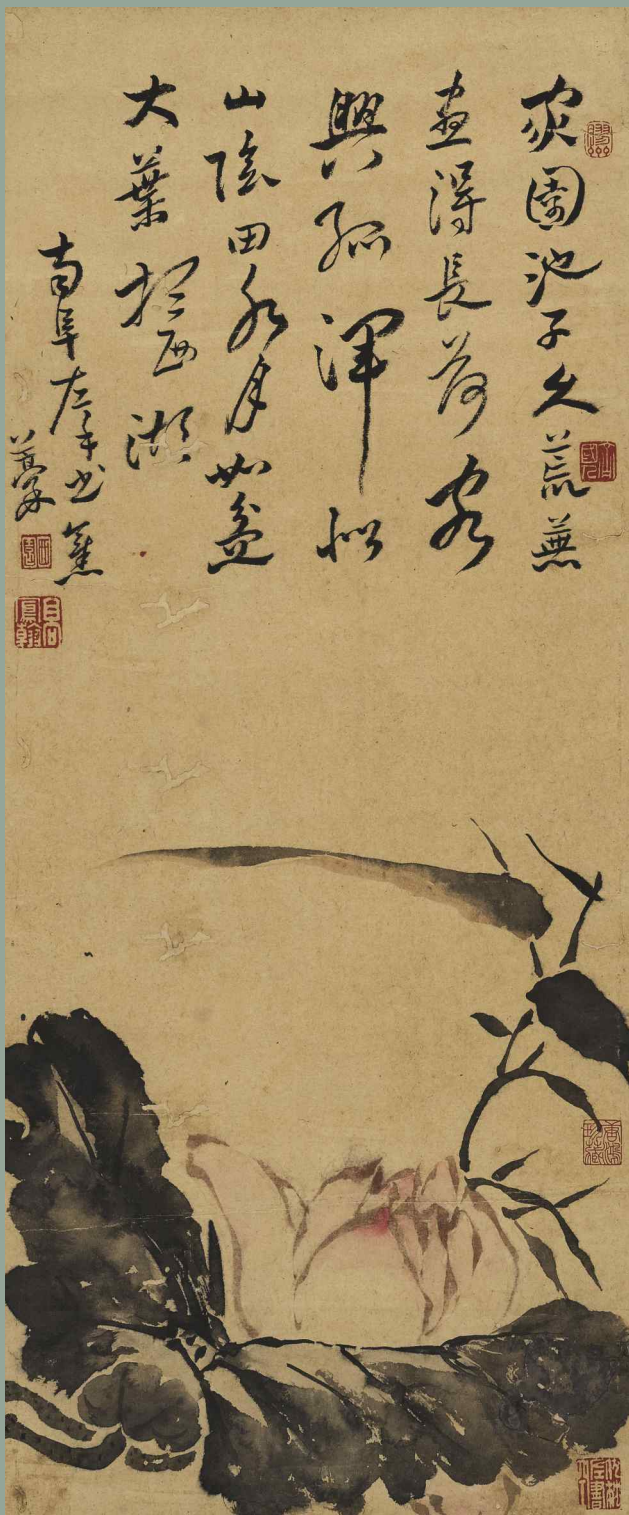 家園池子久荒蕪
畫得長荷客
興孤渾似
山陰田水月如盆
大葉西湖
南阜左手書舊
藁
西園